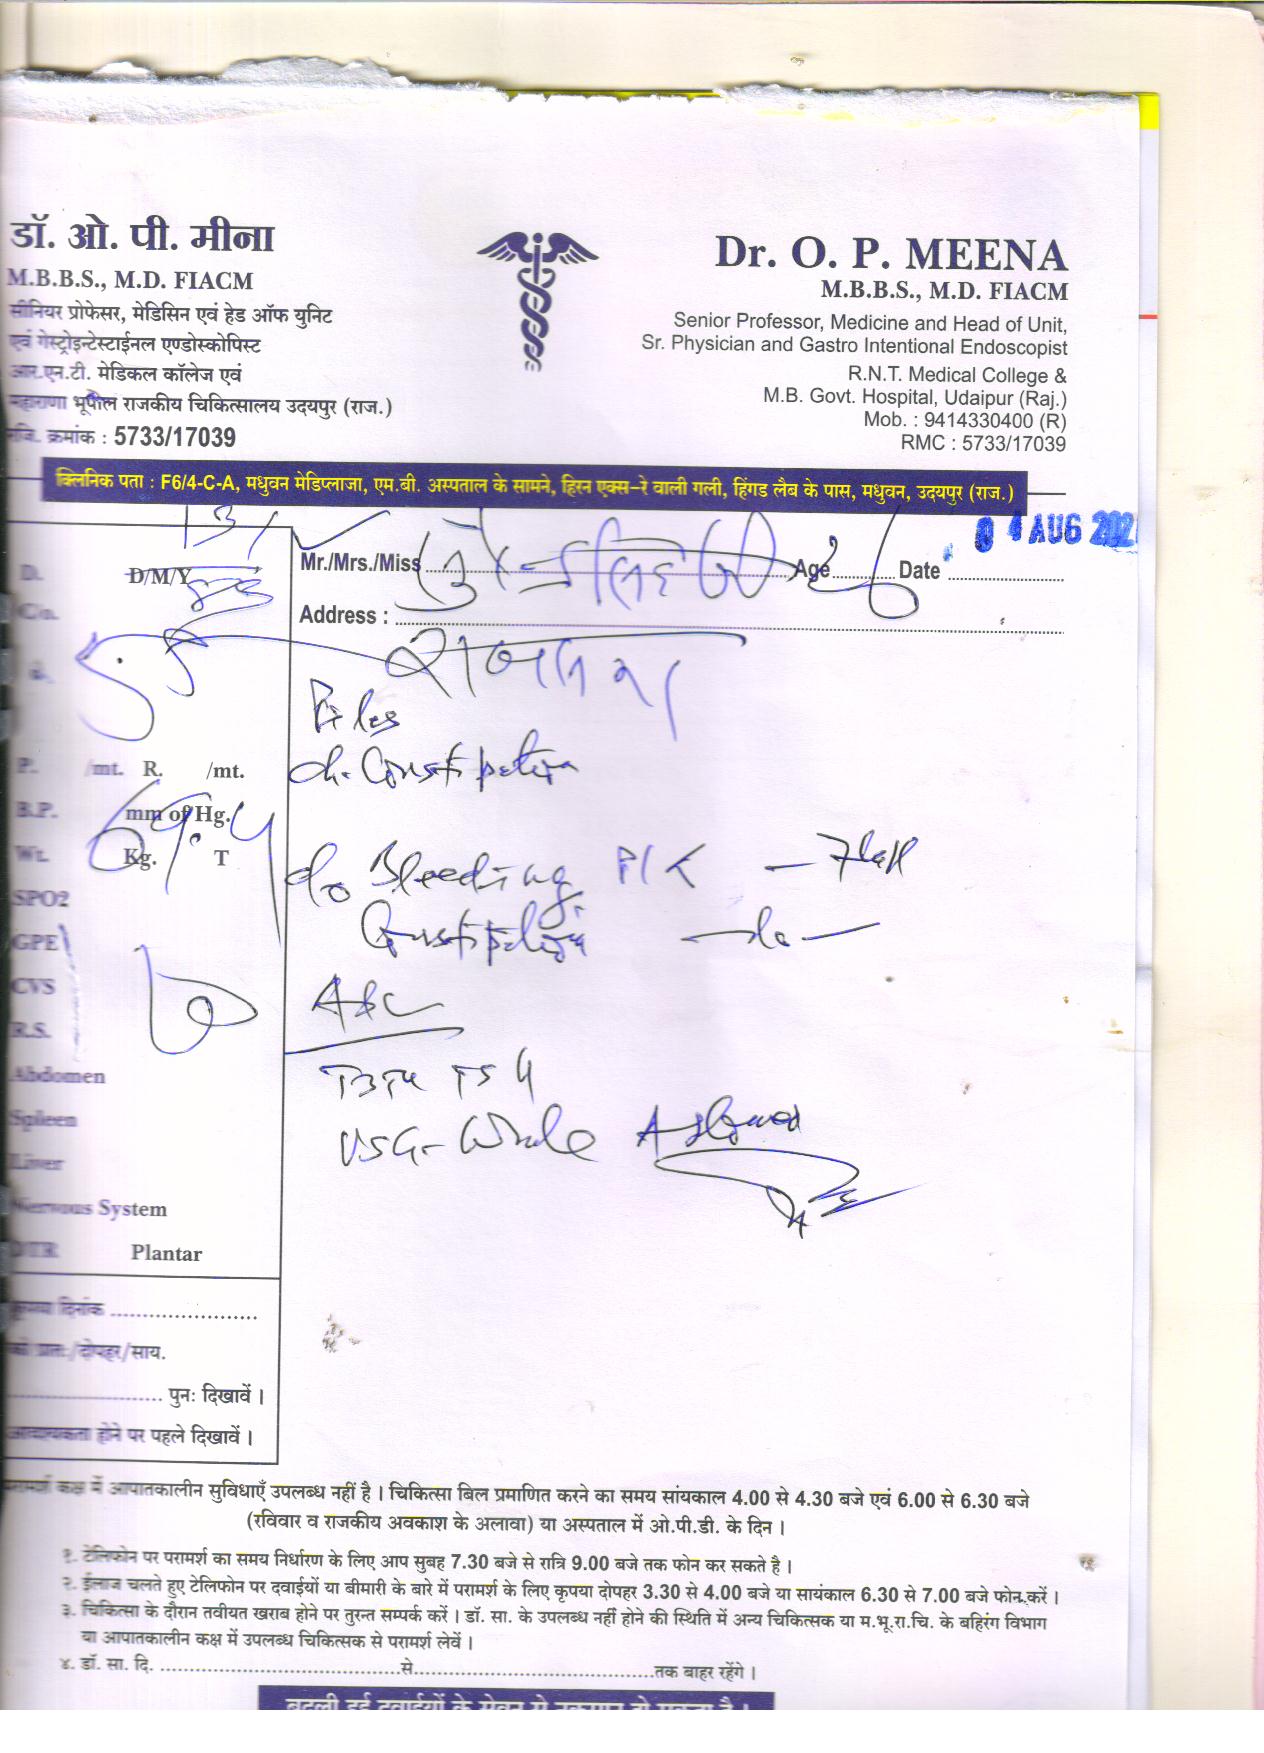 डॉ. ओ. पी. मीना
M.B.B.S., M.D. FIACM
सीनियर प्रोफेसर, मेडिसिन एवं हेड ऑफ युनिट
एवं गेस्ट्रोइन्टेस्टाईनल एण्डोस्कोपिस्ट
आर.एन.टी. मेडिकल कॉलेज एवं
महाराणा भूपाल राजकीय चिकित्सालय उदयपुर (राज.)
रजि. क्रमांक : 5733/17039
Dr. O. P. MEENA
M.B.B.S., M.D. FIACM
Senior Professor, Medicine and Head of Unit,
Sr. Physician and Gastro Intentional Endoscopist
R.N.T. Medical College &
M.B. Govt. Hospital, Udaipur (Raj.)
Mob. : 9414330400 (R)
RMC : 5733/17039
क्लिनिक पता : F6/4-C-A, मधुवन मेडिप्लाजा, एम.बी. अस्पताल के सामने, हिरन एक्स-रे वाली गली, हिंगड लैब के पास, मधुवन, उदयपुर (राज.)
Mr./Mrs./Miss Age Date 04 AUG
Address :
D. D/M/Y
Co.
P. /mt. R. /mt.
B.P. mm of Hg.
Wt. Kg. T
SPO2
GPE
CVS
R.S.
Abdomen
Spleen
Liver
Nervous System
DTR Plantar
Piles
Ch. Constipation
c/o Bleeding P/R
Constipation — do —
ABC
T3 T4 TSH
USG - Whole Abdomen
कृपया दिनांक
को प्रातः/दोपहर/साय.
पुनः दिखावें ।
आवश्यकता होने पर पहले दिखावें ।
परामर्श कक्ष में आपातकालीन सुविधाएँ उपलब्ध नहीं है । चिकित्सा बिल प्रमाणित करने का समय सांयकाल 4.00 से 4.30 बजे एवं 6.00 से 6.30 बजे
(रविवार व राजकीय अवकाश के अलावा) या अस्पताल में ओ.पी.डी. के दिन ।
१. टेलिफोन पर परामर्श का समय निर्धारण के लिए आप सुबह 7.30 बजे से रात्रि 9.00 बजे तक फोन कर सकते है ।
२. ईलाज चलते हुए टेलिफोन पर दवाईयों या बीमारी के बारे में परामर्श के लिए कृपया दोपहर 3.30 से 4.00 बजे या सायंकाल 6.30 से 7.00 बजे फोन करें ।
३. चिकित्सा के दौरान तवीयत खराब होने पर तुरन्त सम्पर्क करें । डॉ. सा. के उपलब्ध नहीं होने की स्थिति में अन्य चिकित्सक या म.भू.रा.चि. के बहिरंग विभाग
या आपातकालीन कक्ष में उपलब्ध चिकित्सक से परामर्श लेवें ।
४. डॉ. सा. दि. से तक बाहर रहेंगे ।
बदली हुई दवाईयों के सेवन से नुकसान हो सकता है ।